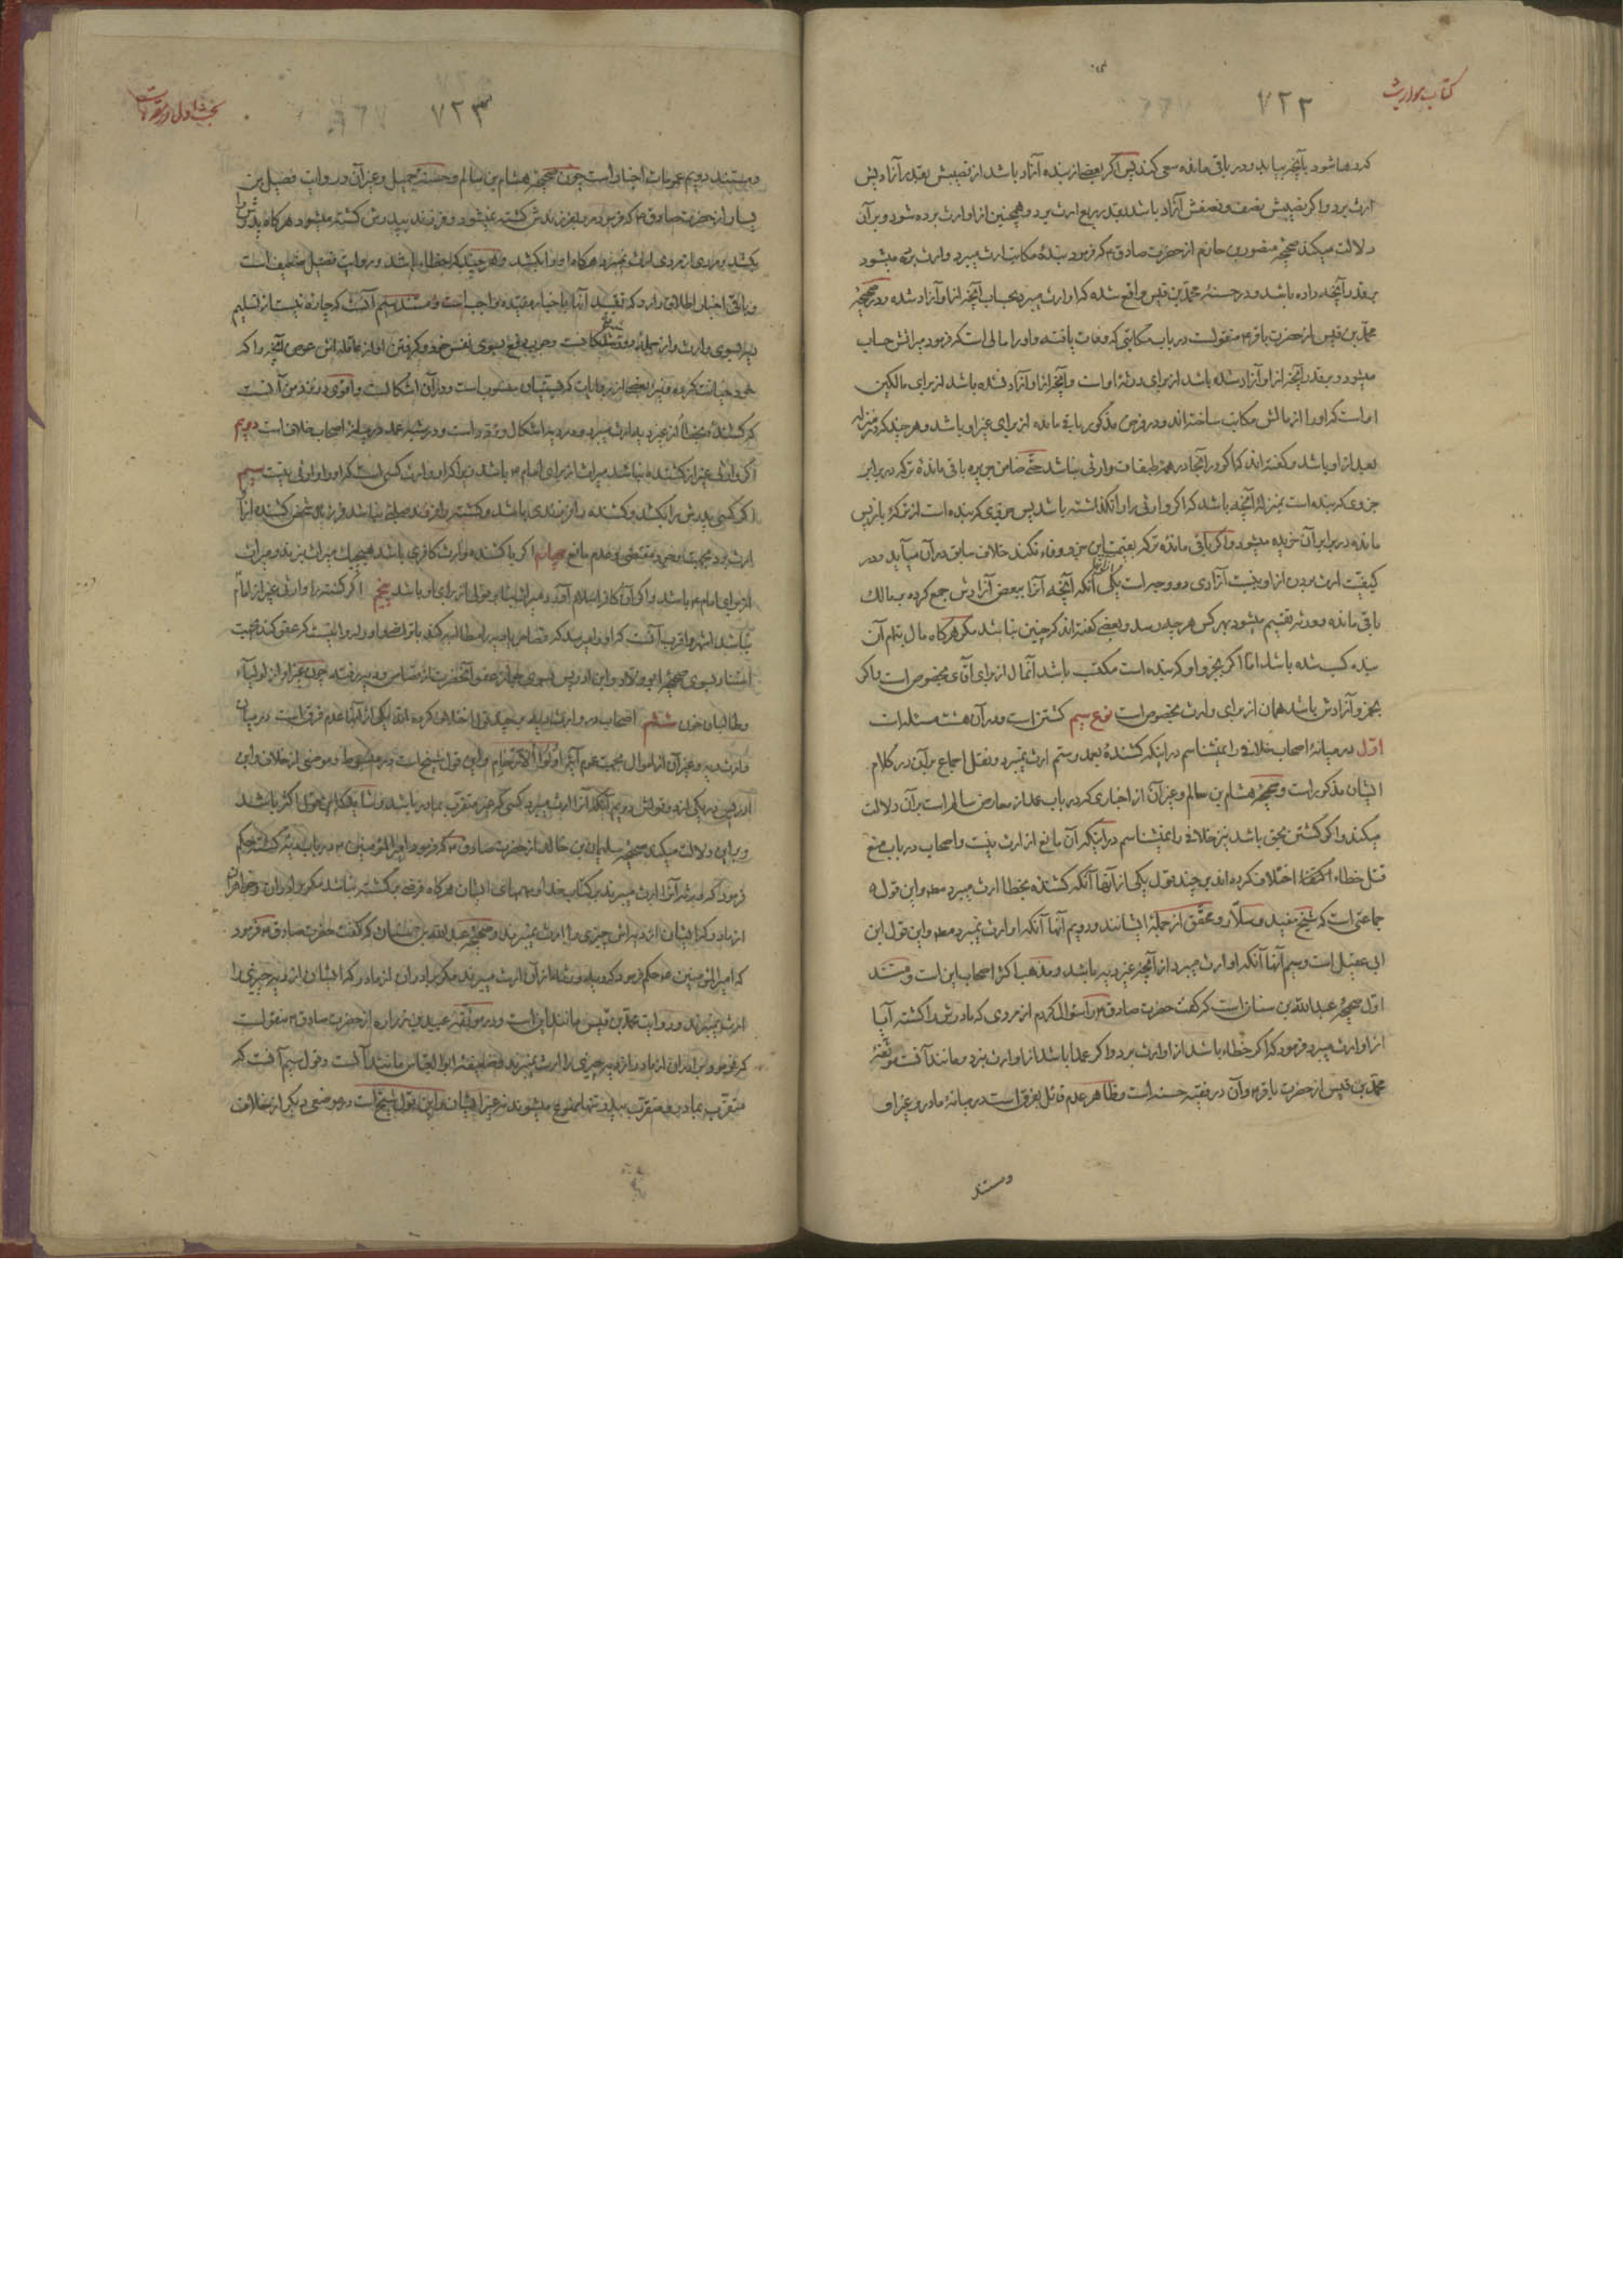 کتاب مواریث
۷۲۲
که رها شود بآنچه بیاید و در باقی مانده سعی کند پس اگر بعضی از بنده آزاد باشد از نصیبش بقدر آزادیش
ارث برد و اگر نصیبش نصف و نصفش آزاد باشد بقدر ربع ارث برد و همچنین از او ارث برده شود و بر آن
دلالت میکند صحیحه منصور بن حازم از حضرت صادق ۴ که فرمود بنده مکاتب ارث میبرد و ارث برده میشود
بقدر آنچه داده باشد و در حسنه محمد بن قیس واقع شده که او ارث میبرد بحساب آنچه از او آزاد شده و در صحیحه
محمد بن قیس از حضرت باقر ۴ منقولست در باب مکاتبی که وفات یافته و او را مالی است که فرمود میراثش حساب
میشود و بقدر آنچه از او آزاد شده باشد از برای ورثه او است و آنچه از او آزاد نشده باشد از برای مالکین
او است که او را از مالش مکاتب ساخته‌اند و در فرض مذکور باقی مانده از برای غیر او باشد و هر چند که در مرتبه
بعد از او باشد و گفته‌اند که اگر در آنجا در همه طبقات وارثی نباشد حتی ضامن جریره باقی مانده ترکه در برابر
جزوی که بنده است بمنزله آنچه باشد که اگر وارثی را وا نگذاشته باشد پس جزوی که بنده است از ترکه باز پس
مانده در برابر آن خریده میشود و اگر باقی مانده ترکه بقیمت این جزو وفا نکند خلاف سابق در آن میآید و در
کیفیت ارث بردن از او بنسبت آزادی دو وجه است یکی آنکه آنچه آنرا ببعض آزادش جمع کرده بمالک
باقی مانده و ورثه تقسیم میشود بهر کس هر چه رسد و بعضی گفته‌اند که چنین نباشد مگر هرگاه مال بتمام آن
بنده کسب شده باشد اما اگر بجزو او که بنده است مکتسب باشد آنمال از برای آقای مخصوص است و اگر
بجزو آزادش باشد همان از برای وارث مخصوص است نوع سیم کشتن است و در آن هشت مسئله است
اول در میانه اصحاب خلافی را نمیشناسم در اینکه کشنده بعمد و ستم ارث نمیبرد و نقل اجماع بر آن در کلام
ایشان مذکور است و صحیحه هشام بن سالم و غیر آن از اخباری که در باب عمد از معارض سالم است بر آن دلالت
میکند و اگر کشتن بحق باشد نیز خلافی را نمیشناسم در اینکه آن مانع از ارث نیست و اصحاب در باب منع
قتل خطاء اختلاف کرده‌اند بر چند قول یکی از آنها آنکه کشنده بخطا ارث میبرد مط و این قول
جماعتی است که شیخ مفید و سلار و محقق از جمله ایشانند و دویم آنها آنکه او ارث نمیبرد مط و این قول ابن
ابی عقیل است و سیم آنها آنکه او ارث میبرد از آنچه غیر دیه باشد و مذهب اکثر اصحاب این است و مستند
اول صحیحه عبد الله بن سنان است که گفت حضرت صادق ۴ را سؤال کردم از مردی که مادرش را کشته آیا
از او ارث میبرد فرمود که اگر خطاء باشد از او ارث برد و اگر عمدا باشد از او ارث نبرد و مانند آنست موثقه
محمد بن قیس از حضرت باقر ۴ و آن در فقیه حسنه است و ظاهر عدم قائل بفرق است در میانه مادر و غیر او
و مستند
بحث اول در مقدمات
۷۲۳
و مستند دویم عمومات اخبار است چون صحیحه هشام بن سالم و حسنه جمیل و غیر آن و روایت فضیل بن
یسار از حضرت صادق ۴ که فرمود مرد بفرزندش کشته نمیشود و فرزند بپدرش کشته میشود هرگاه پدرش را
بکشد و مردی از مردی ارث نمیبرد هرگاه او را بکشد و هر چند که خطا باشد و روایت فضیل ضعیف است
و باقی اخبار اطلاق دارد که تقیید آنها باخبار مقیده واجب است و مستند سیم آنست که چاره نیست از تسلیم
دیه بسوی وارث
خود جنایت کرده و نیز بعضی از روایات که بنبی منسوب است و در آن اشکالست و اقوی در نزد من آنست
که کشنده بخطا از غیر دیه ارث میبرد و در دیه اشکال و تردد است و در شبه عمد در میانه اصحاب خلاف است دویم
اگر وارثی غیر از کشنده نباشد میراث از برای امام ۴ باشد زیرا که او وارث کسی است که او را وارثی نیست سیم
اگر کسی پدرش را بکشد و کشنده را فرزندی باشد و کشته را فرزند صلبی نباشد فرزند شخص کشنده از او
ارث برد بجهت وجود مقتضی و عدم مانع چهارم اگر با کشنده وارث کافری باشد هیچیک میراث نبرند و میراث
از برای امام ۴ باشد و اگر آن کافر اسلام آورد میراث بنا بر قولی از برای او باشد پنجم اگر کشته را وارثی غیر از امام
نباشد اشهر و اقرب آنست که او را میرسد که قصاص یا دیه را مطالبه کند با تراضی و او را روا نیست که عفو کند بجهت
استناد بسوی صحیحه ابو ولاد و ابن ادریس بسوی جواز عفو آنحضرت از قصاص و دیه رفته چون غیر او از اولیاء
و طالبان خون ششم اصحاب در وارث دیه بر چند قول اختلاف کرده‌اند یکی از آنها عدم فرق است در میان
وارث دیه و غیر آن از اموال بجهت عموم آیه اولوا الارحام و این قول شیخ است در مبسوط و موضعی از خلاف و ابن
ادریس در یکی از دو قولش دویم آنکه آنرا ارث میبرد کسی که غیر متقرب بمادر باشد و شاید که این قول اکثر باشد
و بر این دلالت میکند صحیحه سلیمان بن خالد از حضرت صادق ۴ که فرمود امیر المؤمنین ۴ در باب دیه کشته حکم
فرمود که ورثه آنرا ارث میبرند بر کتاب خدا و سهمهای ایشان هرگاه قرضی بر کشته نباشد مگر برادران و خواهران
از مادر که ایشان از دیه‌اش چیزی را ارث نمیبرند و صحیحه عبد الله بن سنان که گفت حضرت صادق ۴ فرمود
که امیر المؤمنین ۴ حکم فرمود که دیه را ورثه از آن ارث میبرند مگر برادران از مادر که ایشان از دیه چیزی را
ارث نمیبرند و روایت محمد بن قیس مانند این است و در موثقه عبید بن زراره از حضرت صادق ۴ منقولست
که فرمود برادران از مادر از دیه چیزی را ارث نمیبرند و ضعیفه ابو العباس مانند آنست و قول سیم آنست که
متقرب بمادر و متقرب بپدر تنها ممنوع میشوند نه غیر ایشان و این قول شیخ است در موضعی دیگر از خلاف